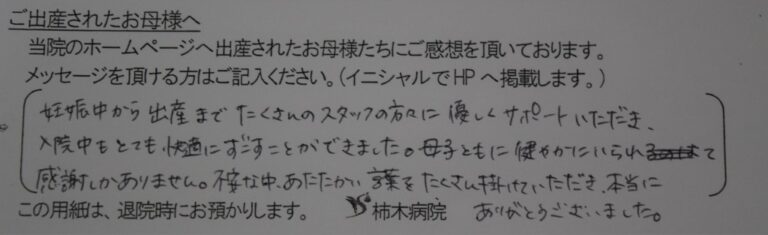 ご出産されたお母様へ
当院のホームページへ出産されたお母様たちにご感想を頂いております。
メッセージを頂ける方はご記入ください。(イニシャルでHPへ掲載します。)
妊娠中から出産までたくさんのスタッフの方々に優しくサポートいただき、
入院中もとても快適にすごすことができました。母子ともに健やかにいられて
感謝しかありません。不安な中、あたたかい言葉をたくさん掛けていただき、本当に
ありがとうございました。
この用紙は、退院時にお預かりします。 柿木病院